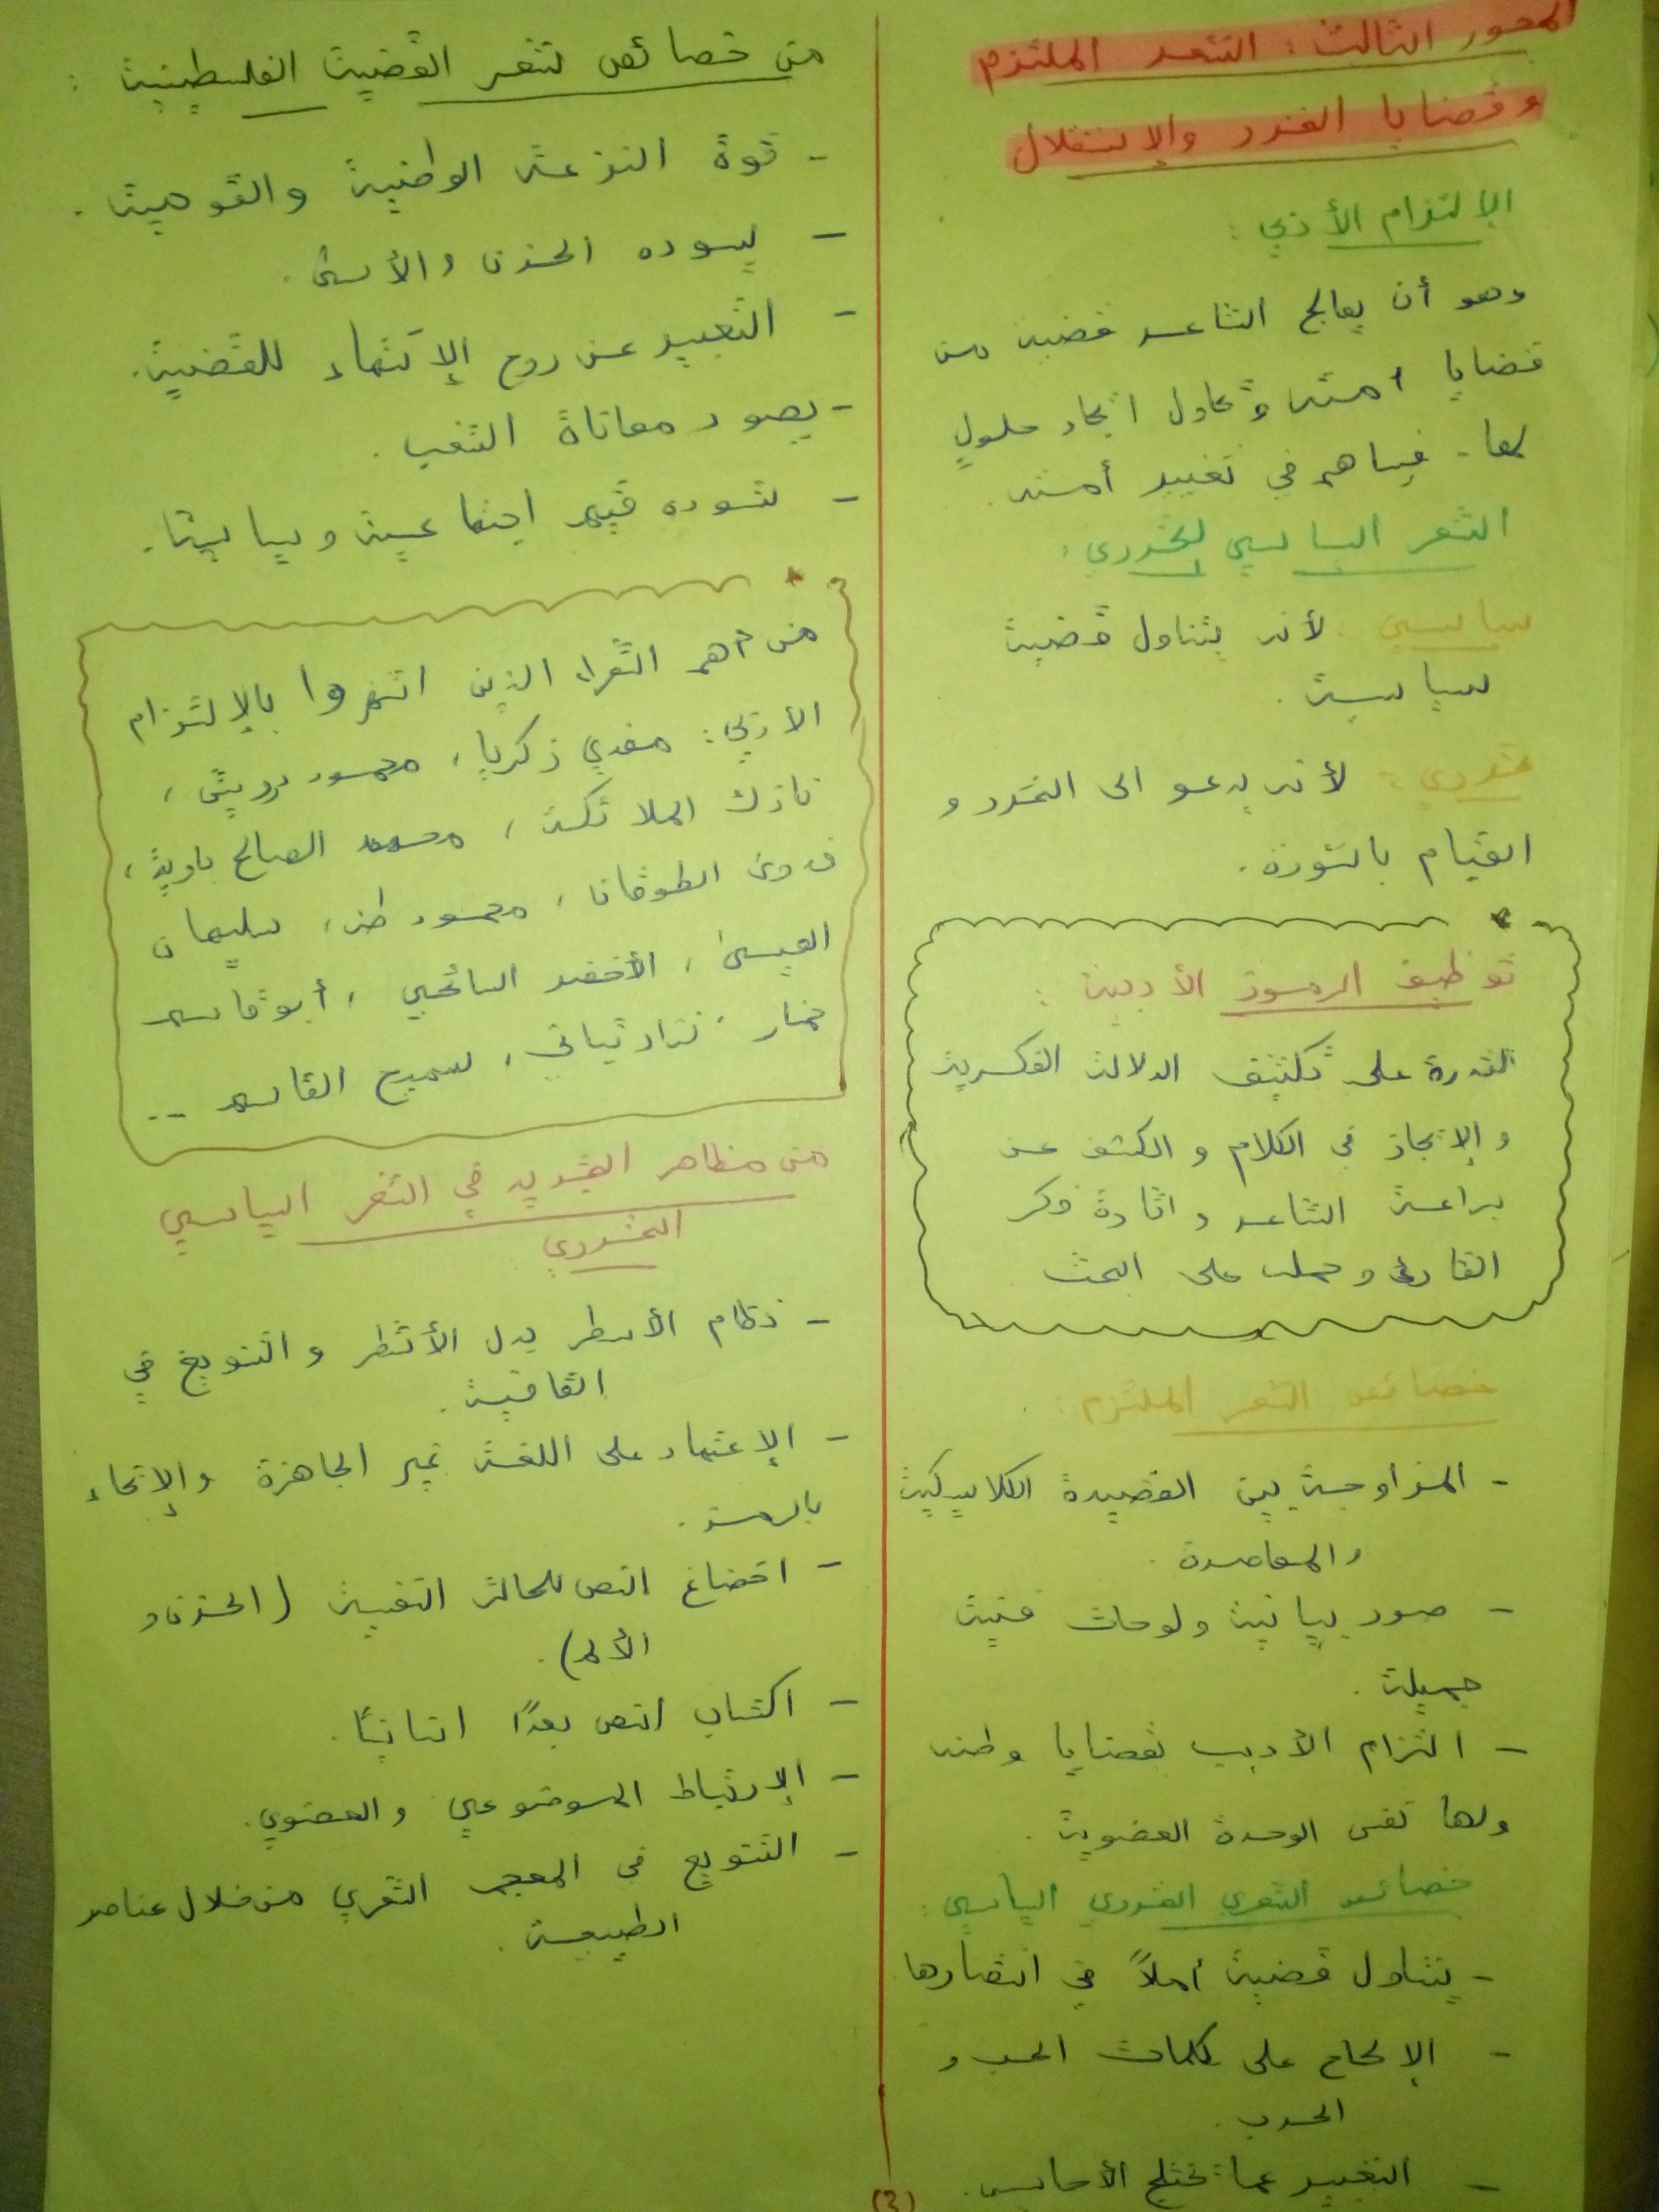 المحور الثالث : الشعر الملتزم
وقضايا التحرر والإستقلال
الإلتزام الأدبي :
وهو أن يعالج الشاعر قضية من
قضايا أمته ويحاول ايجاد حلول
لها . فيساهم في تغيير أمته .
الشعر السياسي التحرري :
سياسي : لأنه يتناول قضية
سياسية .
تحرري : لأنه يدعو الى التحرر و
القيام بالثورة .
توظيف الرموز الأدبية :
القدرة على تكثيف الدلالة الفكرية
و الإيجاز في الكلام و الكشف عن
براعة الشاعر و اثارة فكر
القارئ و حمله على البحث
خصائص الشعر الملتزم :
- المزاوجة بين القصيدة الكلاسيكية
والمعاصرة .
- صور بيانية ولوحات فنية
جميلة .
- التزام الأديب بقضايا وطنه
ولها نفس الوحدة العضوية .
خصائص الشعري التحرري السياسي :
- يتناول قضية أملاً في انتصارها
- الإلحاح على كلمات الحب و
الحرب .
- التعبير عما تختلج الأحاسيس .
من خصائص شعر القضية الفلسطينية :
- قوة النزعة الوطنية والقومية .
- يسوده الحزن والأسى .
- التعبير عن روح الإنتماء للقضية .
- يصور معاناة الشعب .
- تسوده قيم اجتماعية وسياسية .
من أهم الشعراء الذين اشتهروا بالإلتزام
الأدبي : مفدي زكريا ، محمود درويش ،
نازك الملائكة ، محمد الصالح باوية ،
فدوى الطوقان ، محمود طه ، سليمان
العيسى ، الأخضر السائحي ، أبو قاسم
خمار ، نزار قباني ، سميح القاسم ..
من مظاهر التجديد في الشعر السياسي
التحرري
- نظام الأسطر بدل الأشطر و التنويع في
القافية .
- الإعتماد على اللغة غير الجاهزة والإيحاء
بالرمز .
- اخضاع النص للحالة النفسية ( الحزن و
الألم ) .
- اكتساب النص بعدًا انسانيًا .
- الإرتباط الموضوعي والعضوي .
- التنويع في المعجم الشعري من خلال عناصر
الطبيعة .
(3)